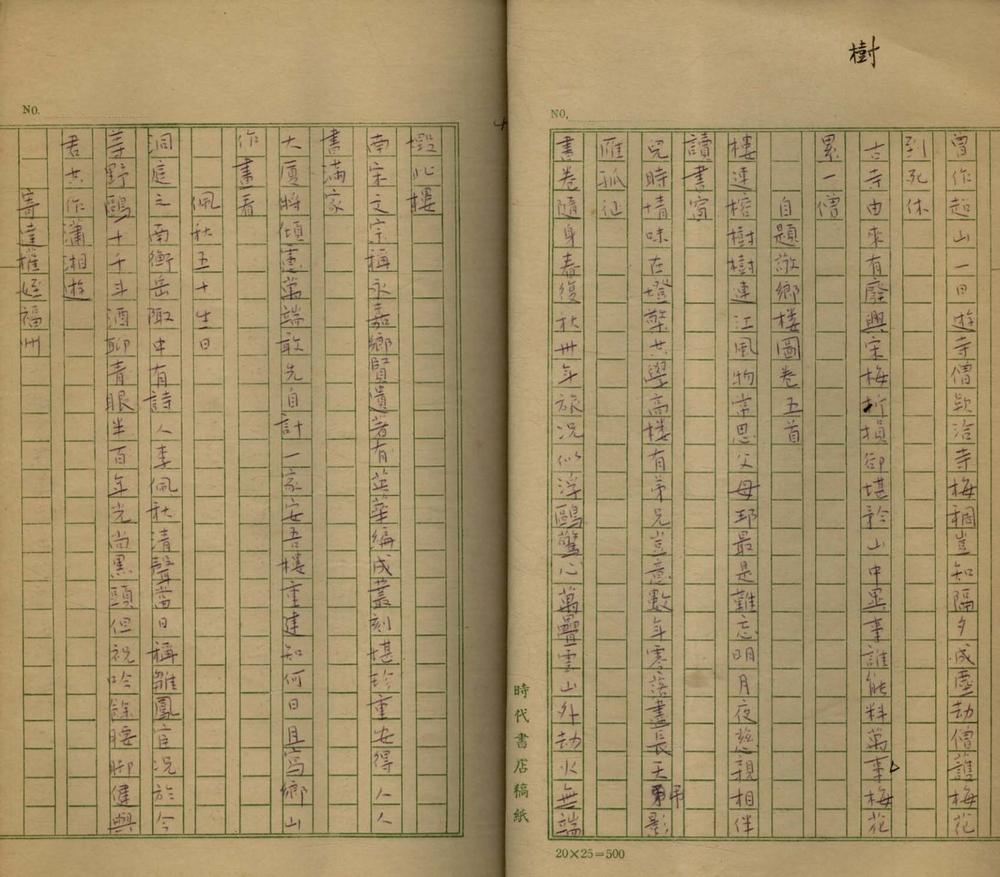 樹
NO.
曾作超山一日遊寺僧款洽寺梅稠豈知隔夕成塵劫僧護梅花
到死休
古寺由來有廢興宋梅折損卻堪矜山中異事誰能料萬事梅花
累一僧
自題敬鄉樓圖卷五首
樓連榕樹樹連江風物常思父母邦最是難忘明月夜慈親相伴
讀書窗
兒時情味在燈檠共學高樓有弟兄豈意數年零落盡長天弔影
雁孤征
書卷隨身春復秋卅年旅況似浮鷗驚心萬疊雲山外劫火無端
時代書店稿紙
20×25=500
NO.
燬此樓
南宋文宗稱永嘉鄉賢遺著有英華編成叢刻堪珍重安得人人
書滿家
大廈將傾慮萬端敢先自計一家安吾樓重建知何日且寫鄉山
作畫看
佩秋五十生日
洞庭之南衡岳陬中有詩人李佩秋清聲當日稱雛鳳官況於今
等野鷗十千斗酒聊青眼半百年光尚黑頭但祝吟餘腰腳健與
君共作瀟湘遊
寄達權姪福州